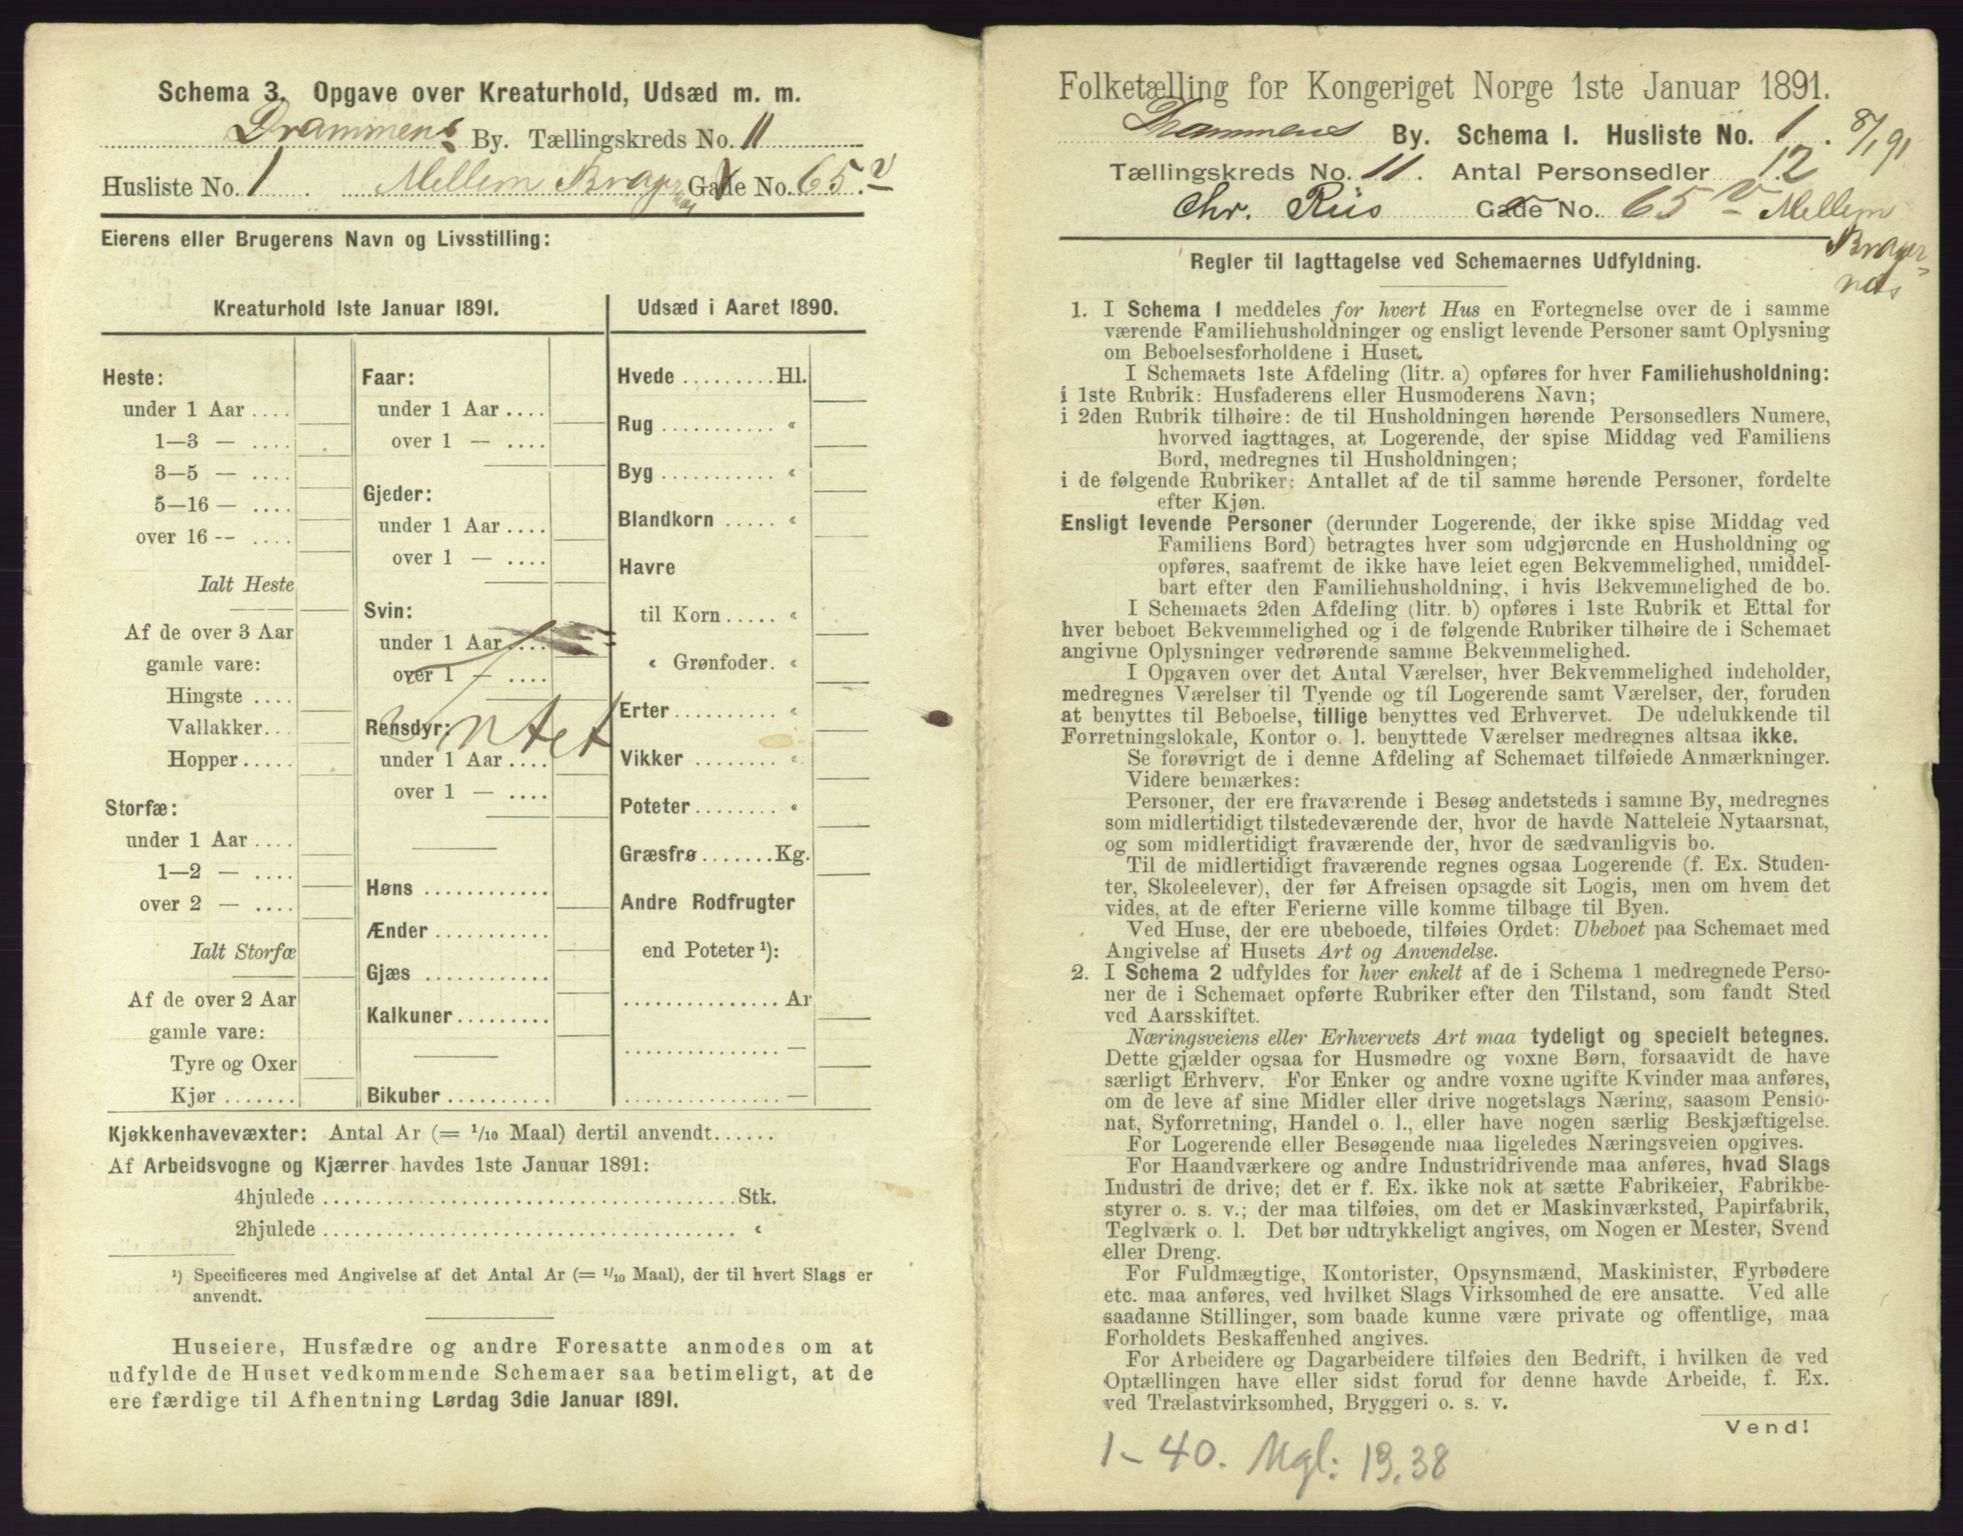 Schema 3. Opgave over Kreaturhold, Udsæd m. m.
Drammens By. Tællingskreds No. 11
Husliste No. 1. Mellem Bragernæs Gade No. 65 v
Eierens eller Brugerens Navn og Livsstilling:
Kreaturhold 1ste Januar 1891.
Heste:
under 1 Aar ....
1—3 — ....
3—5 — ....
5—16 — ....
over 16 -- ....
Ialt Heste
Af de over 3 Aar
gamle vare:
Hingste ....
Vallakker...
Hopper.....
Storfæ:
under 1 Aar ....
1—2 — ....
over 2 — ....
Ialt Storfæ
Af de over 2 Aar
gamle vare:
Tyre og Oxer
Kjør .......
Faar:
under 1 Aar ....
over 1 — ....
Gjeder:
under 1 Aar ....
over 1 — ....
Svin:
under 1 Aar ....
over 1 — ....
Intet
Rensdyr:
under 1 Aar ....
over 1 — ....
Høns ............
Ænder ...........
Gjæs ............
Kalkuner.........
Bikuber ..........
Udsæd i Aaret 1890.
Hvede .........Hl.
Rug ........... «
Byg ........... «
Blandkorn ..... «
Havre
til Korn ..... «
« Grønfoder. «
Erter.......... «
Vikker ........ «
Poteter ....... «
Græsfrø.......Kg.
Andre Rodfrugter
end Poteter ¹):
...............Ar
............... —
............... —
Kjøkkenhavevæxter: Antal Ar (= 1/10 Maal) dertil anvendt......
Af Arbeidsvogne og Kjærrer havdes 1ste Januar 1891:
4hjulede ........................................Stk.
2hjulede ........................................ «
¹) Specificeres med Angivelse af det Antal Ar (= 1/10 Maal), der til hvert Slags er
anvendt.
Huseiere, Husfædre og andre Foresatte anmodes om at
udfylde de Huset vedkommende Schemaer saa betimeligt, at de
ere færdige til Afhentning Lørdag 3die Januar 1891.
Folketælling for Kongeriget Norge 1ste Januar 1891.
Drammens By. Schema I. Husliste No. 1. 8/1 91
Tællingskreds No. 11. Antal Personsedler 12
Chr. Riis Gade No. 65 v Mellem
Brager-
næs
Regler til Iagttagelse ved Schemaernes Udfyldning.
1. I Schema 1 meddeles for hvert Hus en Fortegnelse over de i samme
værende Familiehusholdninger og ensligt levende Personer samt Oplysning
om Beboelsesforholdene i Huset.
I Schemaets 1ste Afdeling (litr. a) opføres for hver Familiehusholdning:
i 1ste Rubrik: Husfaderens eller Husmoderens Navn;
i 2den Rubrik tilhøire: de til Husholdningen hørende Personsedlers Numere,
hvorved iagttages, at Logerende, der spise Middag ved Familiens
Bord, medregnes til Husholdningen;
i de følgende Rubriker: Antallet af de til samme hørende Personer, fordelte
efter Kjøn.
Ensligt levende Personer (derunder Logerende, der ikke spise Middag ved
Familiens Bord) betragtes hver som udgjørende en Husholdning og
opføres, saafremt de ikke have leiet egen Bekvemmelighed, umiddel-
bart efter den Familiehusholdning, i hvis Bekvemmelighed de bo.
I Schemaets 2den Afdeling (litr. b) opføres i 1ste Rubrik et Ettal for
hver beboet Bekvemmelighed og i de følgende Rubriker tilhøire de i Schemaet
angivne Oplysninger vedrørende samme Bekvemmelighed.
I Opgaven over det Antal Værelser, hver Bekvemmelighed indeholder,
medregnes Værelser til Tyende og til Logerende samt Værelser, der, foruden
at benyttes til Beboelse, tillige benyttes ved Erhvervet. De udelukkende til
Forretningslokale, Kontor o. l. benyttede Værelser medregnes altsaa ikke.
Se forøvrigt de i denne Afdeling af Schemaet tilføiede Anmærkninger.
Videre bemærkes:
Personer, der ere fraværende i Besøg andetsteds i samme By, medregnes
som midlertidigt tilstedeværende der, hvor de havde Natteleie Nytaarsnat,
og som midlertidigt fraværende der, hvor de sædvanligvis bo.
Til de midlertidigt fraværende regnes ogsaa Logerende (f. Ex. Studen-
ter, Skoleelever), der før Afreisen opsagde sit Logis, men om hvem det
vides, at de efter Ferierne ville komme tilbage til Byen.
Ved Huse, der ere ubeboede, tilføies Ordet: Ubeboet paa Schemaet med
Angivelse af Husets Art og Anvendelse.
2. I Schema 2 udfyldes for hver enkelt af de i Schema 1 medregnede Perso-
ner de i Schemaet opførte Rubriker efter den Tilstand, som fandt Sted
ved Aarsskiftet.
Næringsveiens eller Erhvervets Art maa tydeligt og specielt betegnes.
Dette gjælder ogsaa for Husmødre og voxne Børn, forsaavidt de have
særligt Erhverv. For Enker og andre voxne ugifte Kvinder maa anføres,
om de leve af sine Midler eller drive nogetslags Næring, saasom Pensio-
nat, Syforretning, Handel o. l., eller have nogen særlig Beskjæftigelse.
For Logerende eller Besøgende maa ligeledes Næringsveien opgives.
For Haandværkere og andre Industridrivende maa anføres, hvad Slags
Industri de drive; det er f. Ex. ikke nok at sætte Fabrikeier, Fabrikbe-
styrer o. s. v.; der maa tilføies, om det er Maskinværksted, Papirfabrik,
Teglværk o. l. Det bør udtrykkeligt angives, om Nogen er Mester, Svend
eller Dreng.
For Fuldmægtige, Kontorister, Opsynsmænd, Maskinister, Fyrbødere
etc. maa anføres, ved hvilket Slags Virksomhed de ere ansatte. Ved alle
saadanne Stillinger, som baade kunne være private og offentlige, maa
Forholdets Beskaffenhed angives.
For Arbeidere og Dagarbeidere tilføies den Bedrift, i hvilken de ved
Optællingen have eller sidst forud for denne havde Arbeide, f. Ex.
ved Trælastvirksomhed, Bryggeri o. s. v.
Vend!
1 - 40. Mgl: 19, 38